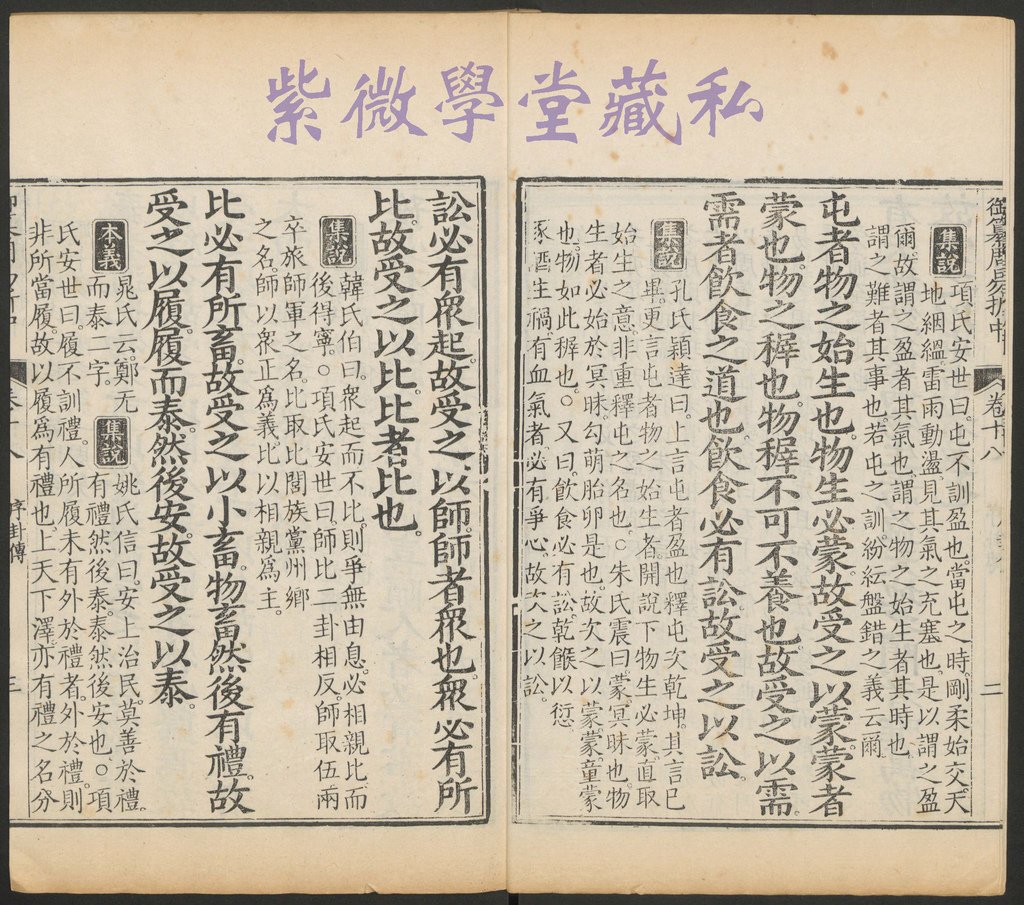 紫微學堂藏私
御纂周易折中
卷十八
二
集說
項氏安世曰。屯不訓盈也。當屯之時。剛柔始交。天
地絪縕。雷雨動盪。見其氣之充塞也。是以謂之盈
爾。故謂之盈者其氣也。謂之物之始生者其時也。
謂之難者其事也。若屯之訓。紛紜盤錯之義云爾。
屯者物之始生也。物生必蒙。故受之以蒙。蒙者
蒙也。物之穉也。物穉不可不養也。故受之以需
需者飲食之道也。飲食必有訟。故受之以訟。
集說
孔氏穎達曰。上言屯者盈也。釋屯次乾坤。其言已
畢。更言屯者物之始生者。開說下物生必蒙。直取
始生之意。非重釋屯之名也。○朱氏震曰。蒙冥昧也。物
生者必始於冥昧。勾萌胎卵是也。故次之以蒙。蒙童蒙
也。物如此穉也。○又曰。飲食必有訟。乾餱以愆
豕酒生禍。有血氣者必有爭心。故次之以訟。
訟必有衆起。故受之以師。師者衆也。衆必有所
比。故受之以比。比者比也。
集說
韓氏伯曰。衆起而不比。則爭無由息。必相親比。而
後得寧。○項氏安世曰。師比二卦相反。師取伍兩
卒旅師軍之名。比取比閭族黨州鄉
之名。師以衆正爲義。比以相親爲主。
比必有所畜。故受之以小畜。物畜然後有禮。故
受之以履。履而泰。然後安。故受之以泰。
本義
晁氏云。鄭无
而泰二字。
集說
姚氏信曰。安上治民。莫善於禮。
有禮然後泰。泰然後安也。○項
氏安世曰。履不訓禮。人所履未有外於禮者。外於禮。則
非所當履。故以履爲有禮也。上天下澤。亦有禮之名分
卷十八
序卦傳
三